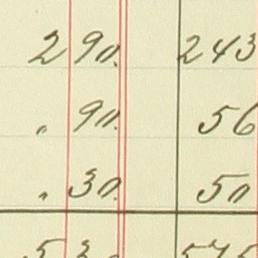 2 90. 243
. 90. 56
. 30. 50